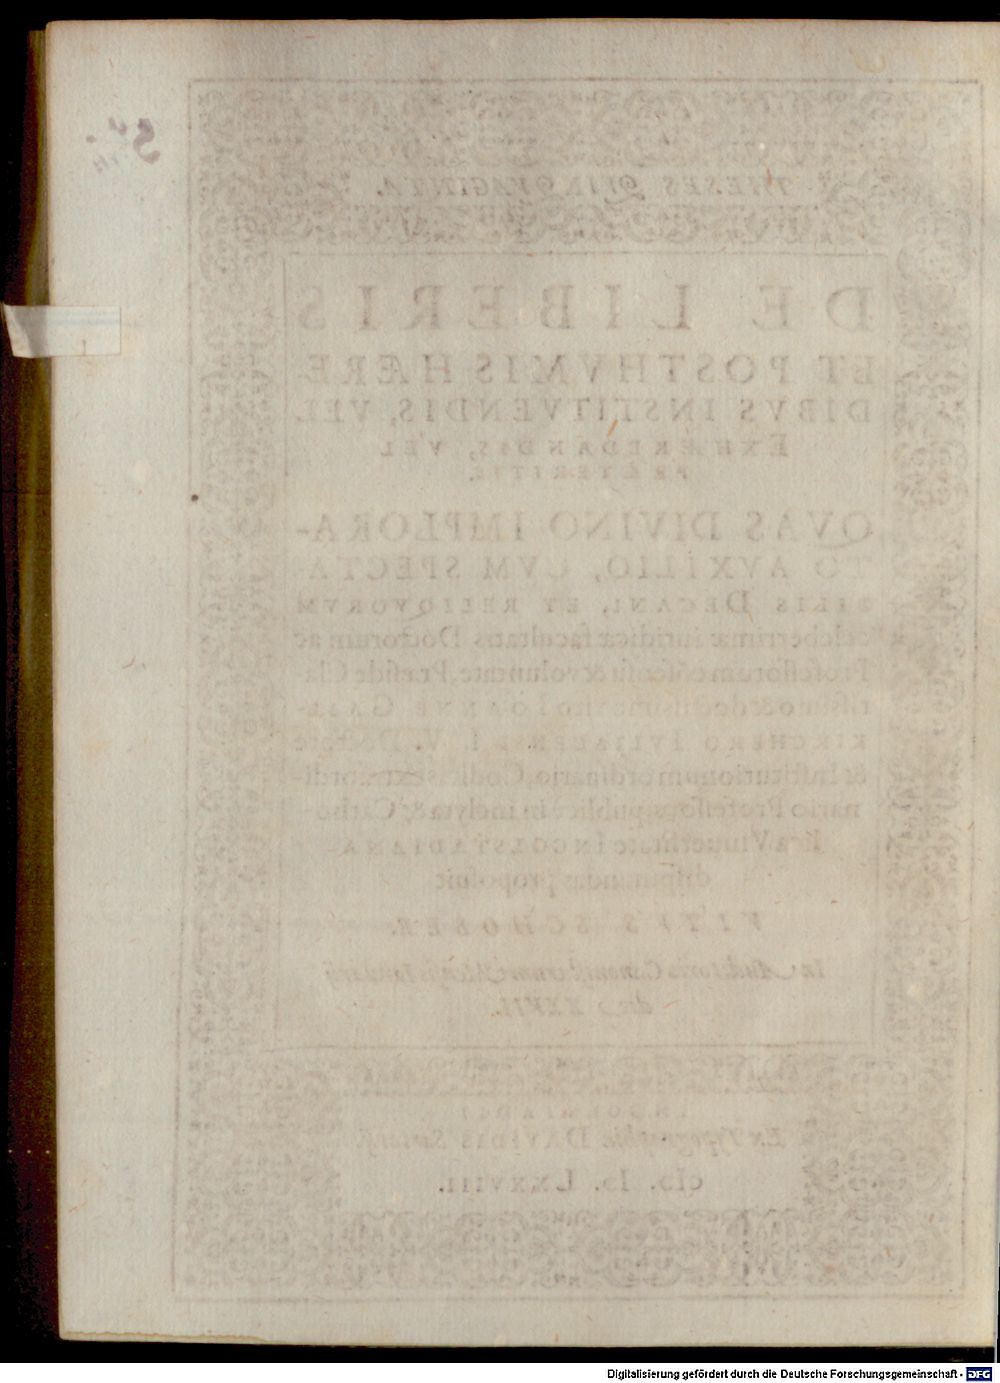 THESES QVINQVAGINTA.
DE LIBERIS
ET POSTHVMIS HÆRE
DIBVS INSTITVENDIS, VEL
EXHÆREDANDIS, VEL
PRÆTERITIS.
QVAS DIVINO IMPLORA-
TO AVXILIO, CVM SPECTA-
BILIS DECANI, ET RELIQVORVM
celeberrimæ iuridicæ facultatis Doctorum ac
Professorum cōsensu & voluntate, Præside Cla-
rissimo & doctissimo viro IOANNE GAIL-
KIRCHERO I. V. Doctore
& Institutionum ordinario, Codicis extraordi-
nario Professore, publicè in inclyta & Catho-
lica Vniuersitate INGOLSTADIANA
disputandas proposuit
VITVS SCHOBER.
In Auditorio Canonistarum Mensis Ianuarij
die XXVII.
INGOLSTADII
Ex Typographia DAVIDIS Sartorij.
CIↃ. IↃ. LXXVIII.
Digitalisierung gefördert durch die Deutsche Forschungsgemeinschaft - DFG